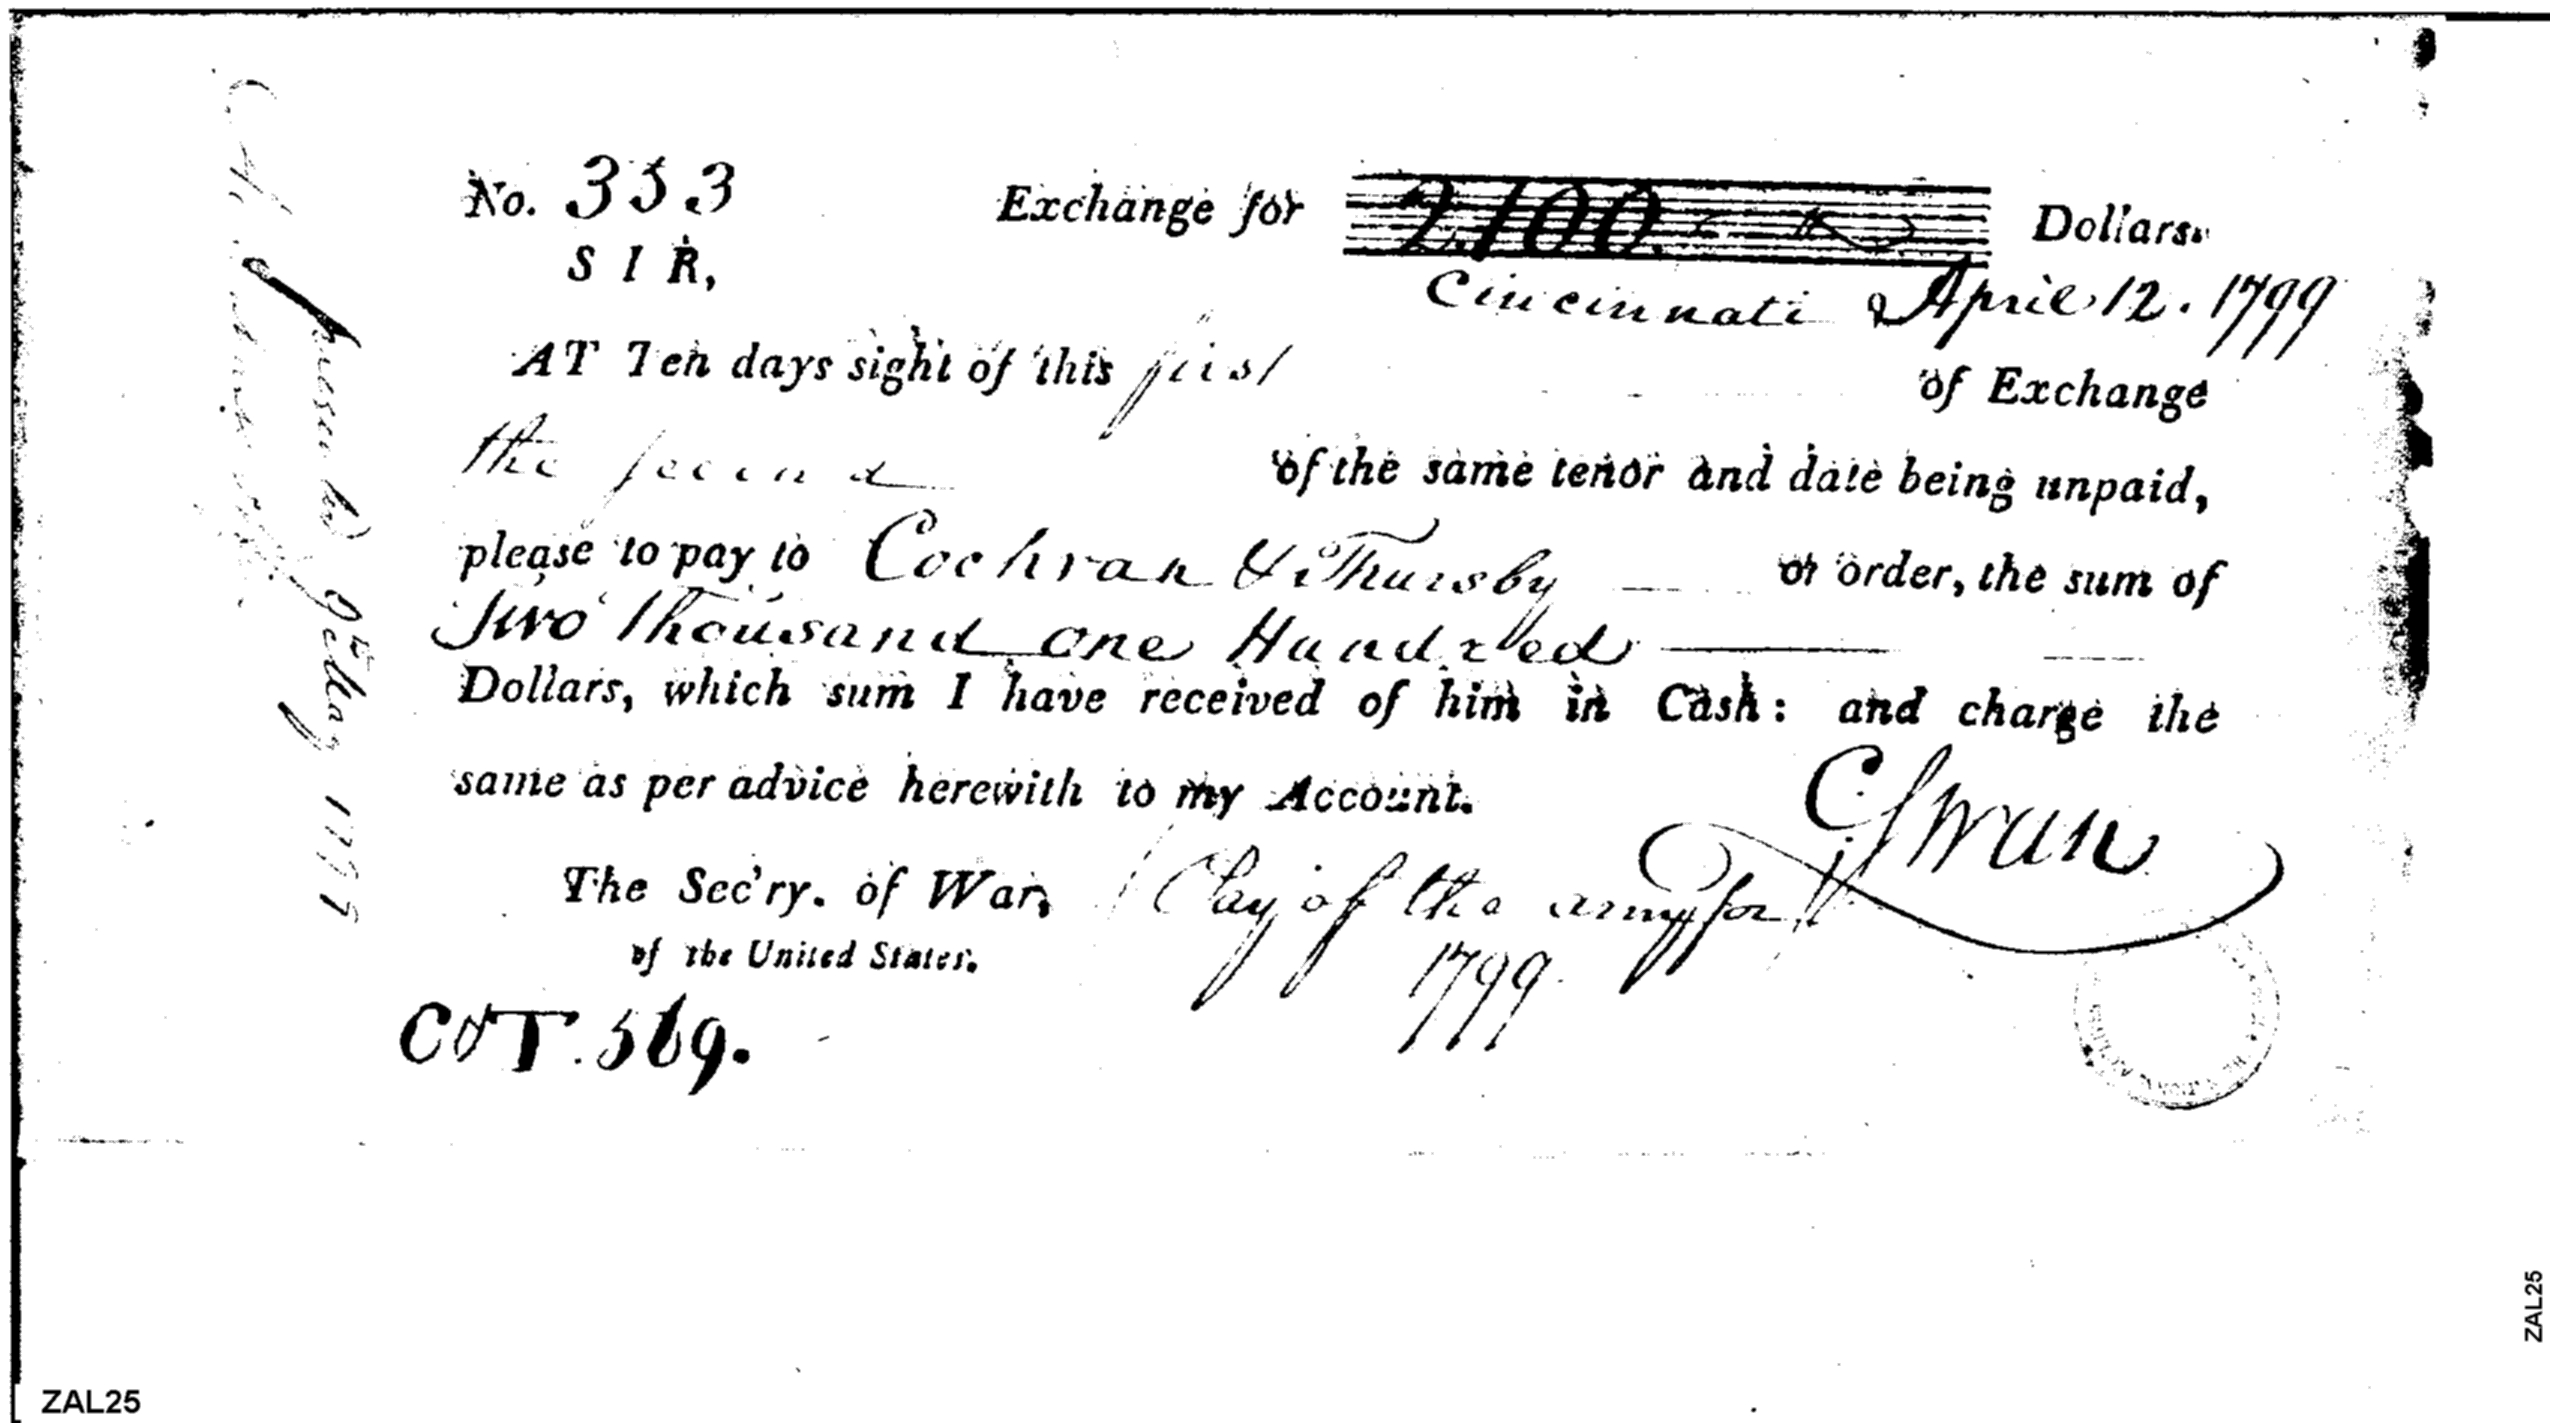 No. 353 Exchange for 2.100. Dollars.
SIR,
Cincinnati April 12. 1799
AT Ten days sight of this first of Exchange
the second of the same tenor and date being unpaid,
please to pay to Cochran & Thursby or order, the sum of
Two Thousand one Hundred
Dollars, which sum I have received of him in Cash: and charge the
same as per advice herewith to my Account.
C. Swan
The Sec'ry. of War, Pay of the army for
of the United States. 1799
COT. 569.
presented 9th May 1799
ZAL25
ZAL25